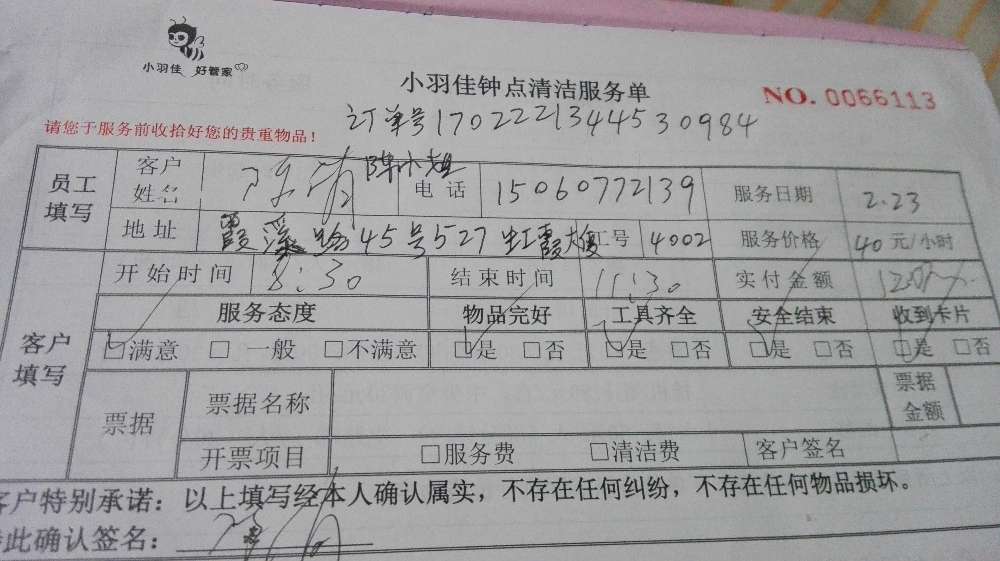 小羽佳 好管家
小羽佳钟点清洁服务单
NO. 0066113
订单号1702221344530984
请您于服务前收拾好您的贵重物品！
员工填写 客户姓名 陈小姐 电话 15060772139 服务日期 2.23
地址 霞溪路45号527虹霞大厦 工号 4002 服务价格 40元/小时
客户填写 开始时间 8:30 结束时间 11:30 实付金额 120
服务态度 物品完好 工具齐全 安全结束 收到卡片
☑满意 □一般 □不满意 ☑是 □否 ☑是 □否 ☑是 □否 ☑是 □否
票据 票据名称 票据金额
开票项目 □服务费 □清洁费 客户签名
客户特别承诺：以上填写经本人确认属实，不存在任何纠纷，不存在任何物品损坏。
此确认签名：